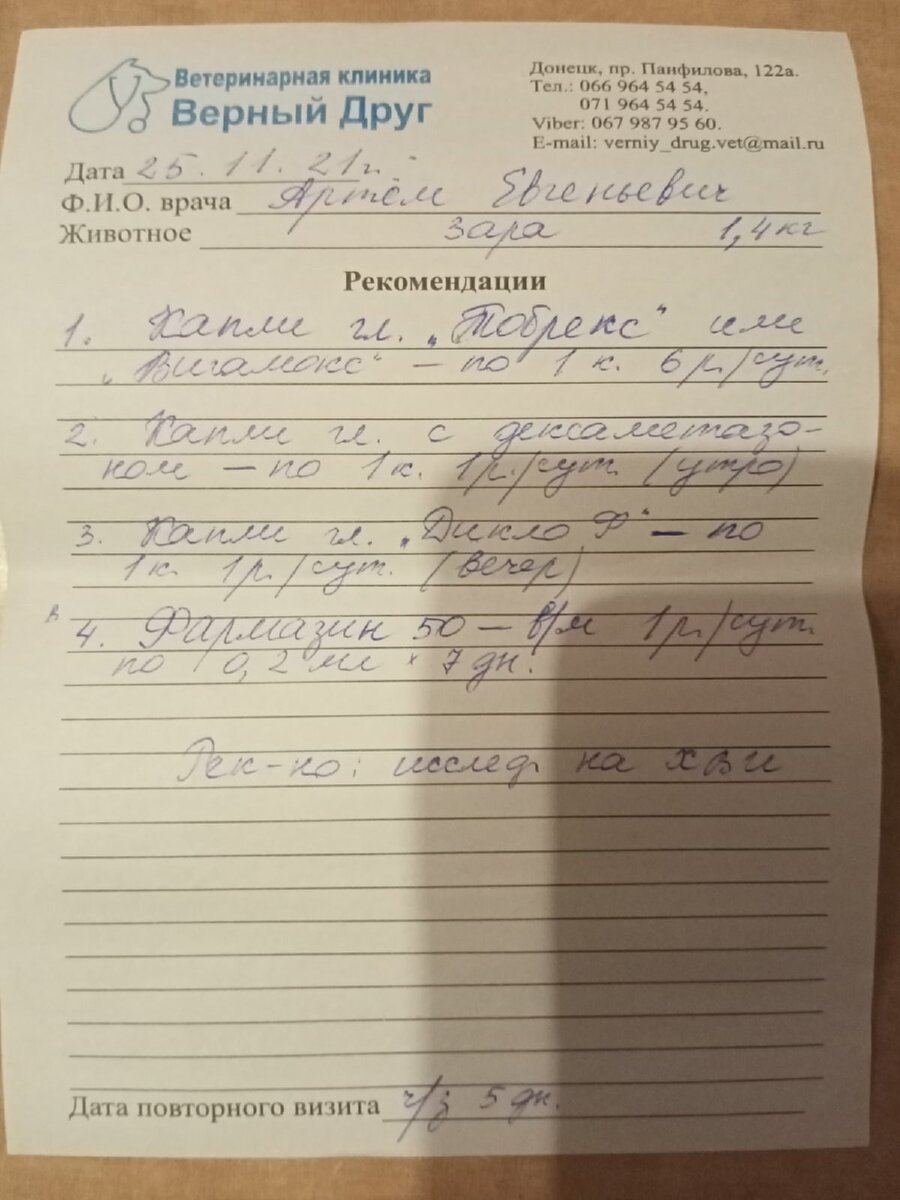 Ветеринарная клиника
Верный Друг
Донецк, пр. Панфилова, 122а.
Тел.: 066 964 54 54,
071 964 54 54.
Viber: 067 987 95 60.
E-mail: verniy_drug.vet@mail.ru
Дата 25.11.21г.
Ф.И.О. врача Артём Евгеньевич
Животное Зара 1,4кг
Рекомендации
1. Капли гл. „Тобрекс" или
„Вигамокс" – по 1 к. 6 р./сут.
2. Капли гл. с дексаметазо-
ном – по 1 к. 1р./сут. (утро)
3. Капли гл. „Дикло Ф" – по
1 к. 1р./сут. (вечер)
4. Фармазин 50 – в/м 1р./сут.
по 0,2 мл × 7 дн.
Рек-но: исслед. на ХВИ
Дата повторного визита ч/з 5 дн.